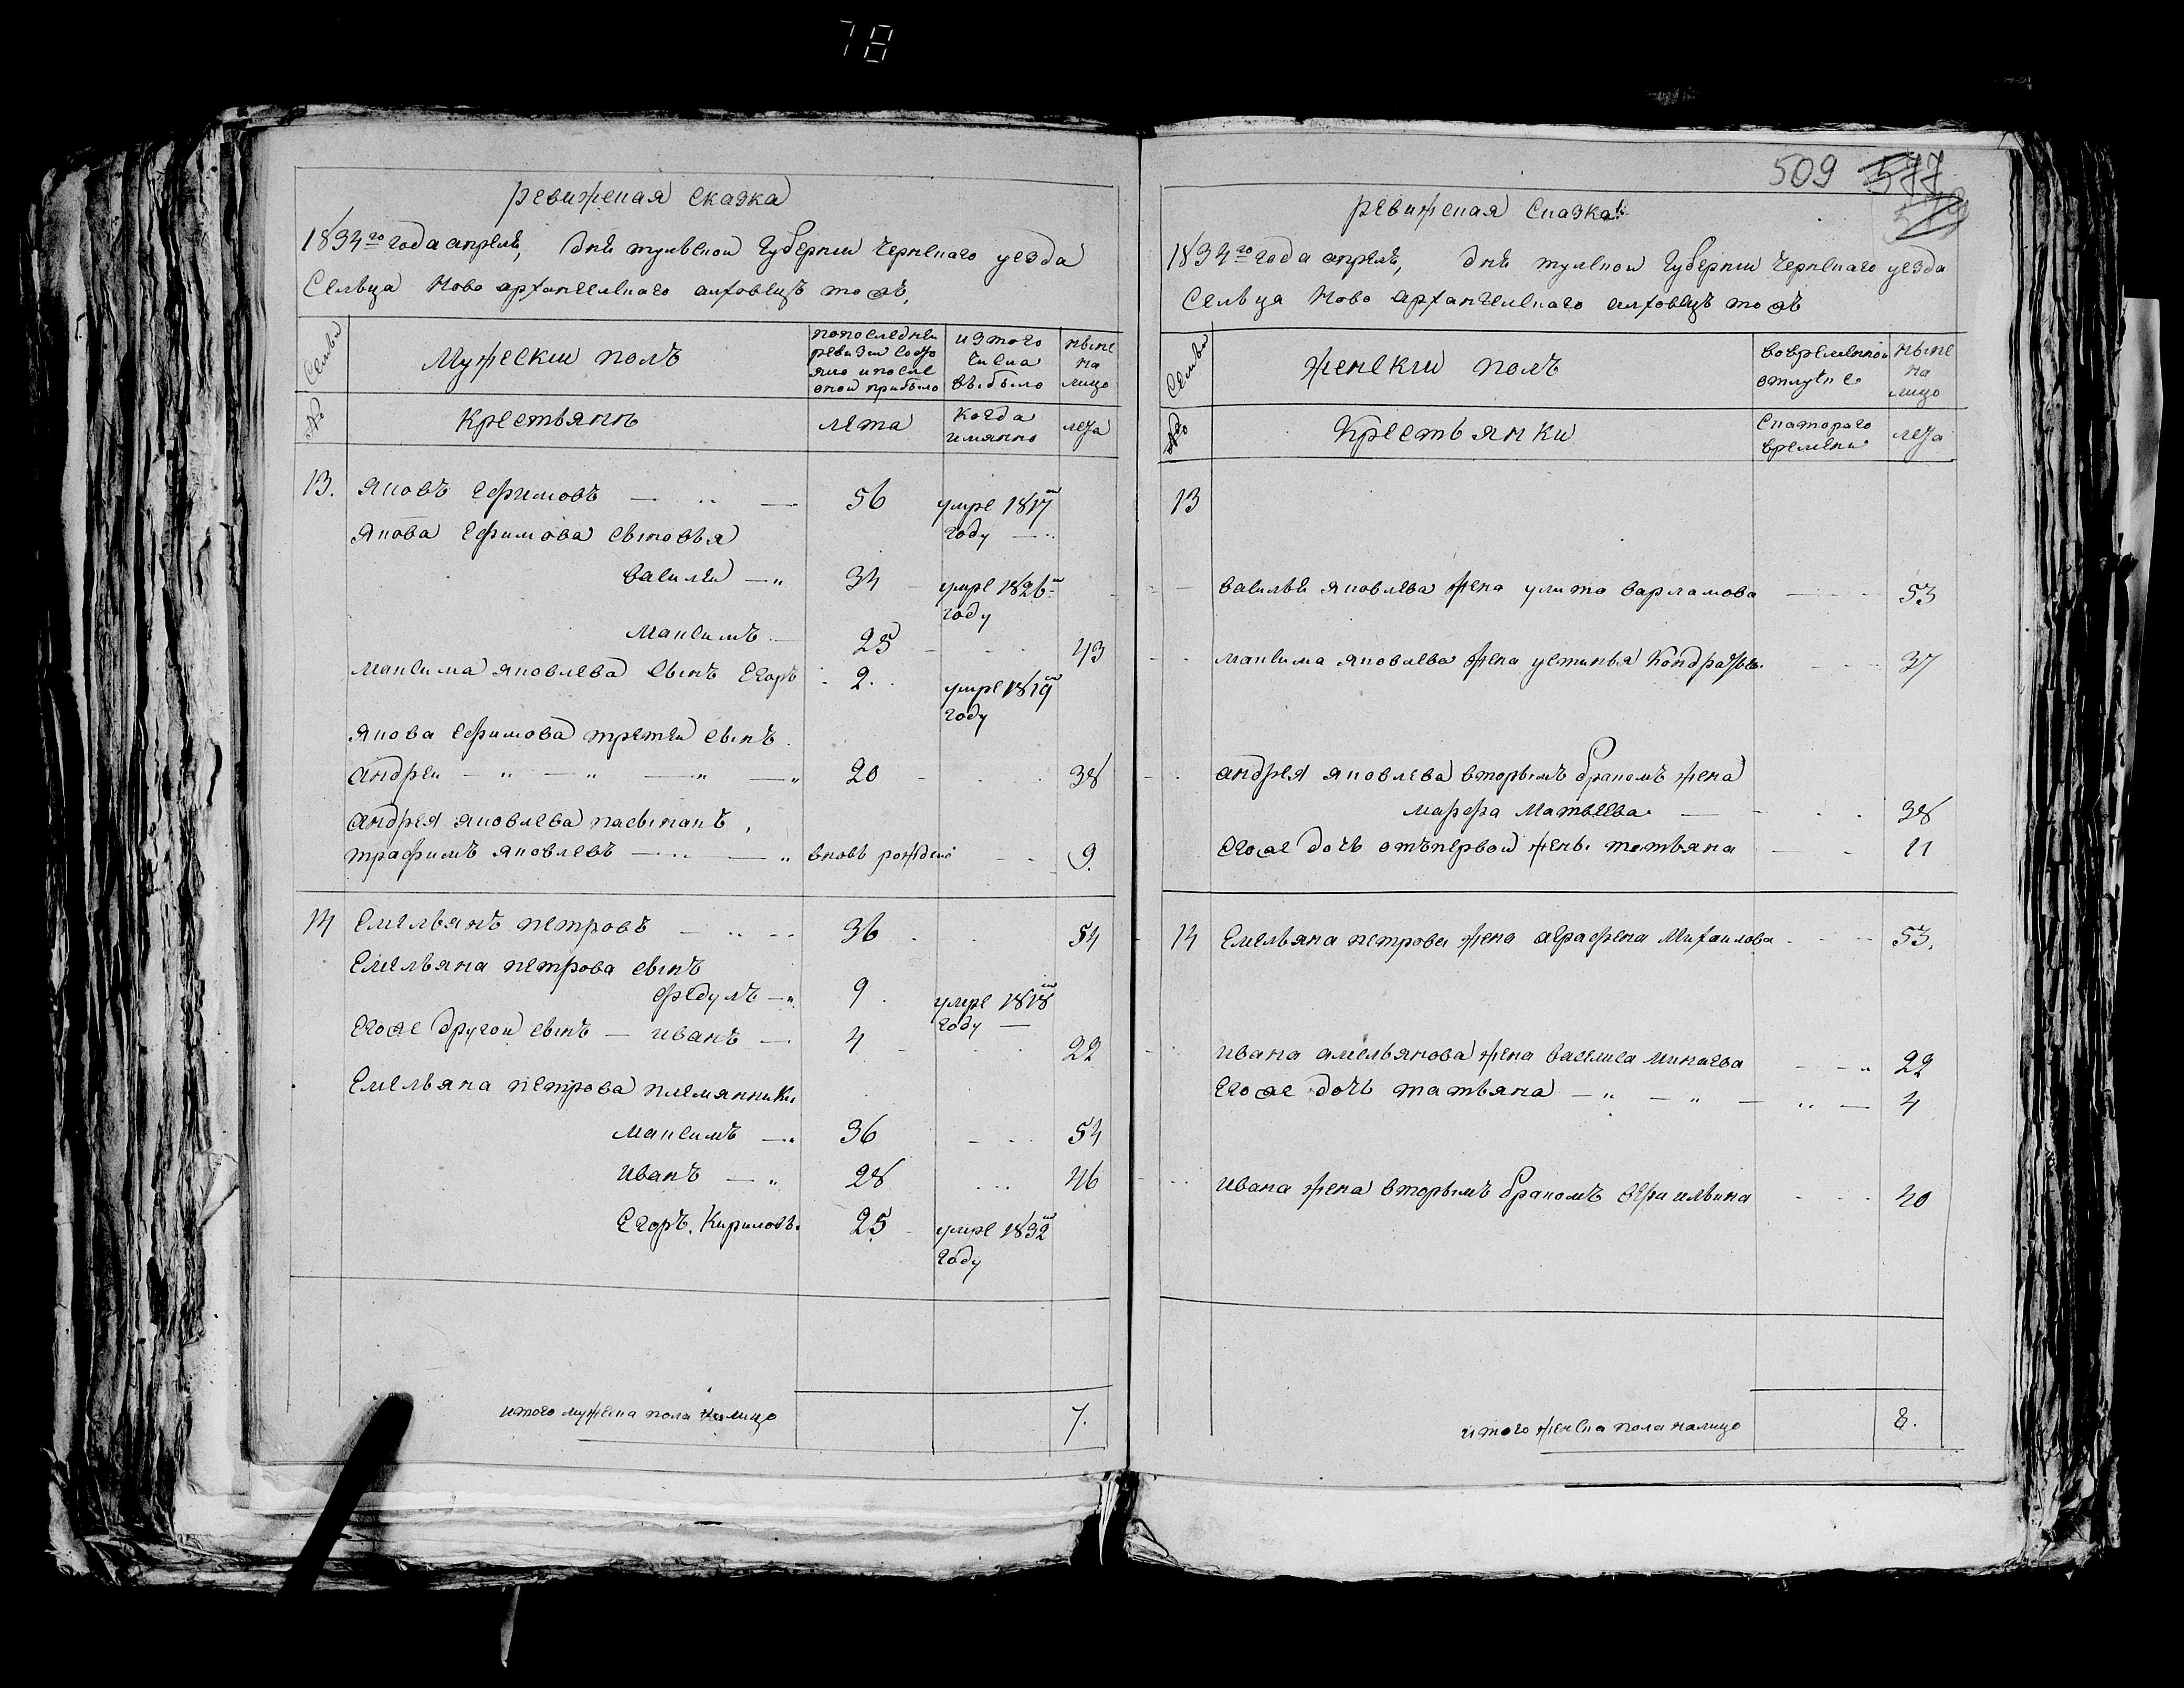 78
ревижская сказка
1834го года апреля, дня тулской губернии чернскаго уезда
Сельца Ново архангелскаго
Семьи
Мужескии полъ
попоследнеи
ревизии состо
яло ипосле
оной прибыло
изтого
числа
выбыло
ныне
на
лицо
№
Крестьяня
лета
когда
имянно
лета
13. яковъ ефимовъ — 〃 — 56 умре 1817м
году
якова ефимова сыновья
василеи — 〃 34 умре 1826м
году
максимъ — 25 43
максима яковлева сынъ егоръ 2. умре 1819м
году
якова ефимова третеи сынъ
андреи — 〃 — 〃 — 〃 — 〃 20 38
андрея яковлева пасынакъ.
трафимъ яковлевъ — 〃 — 〃 вновь рожденъ 9.
14 емельянъ петровъ 36 54
емельяна петрова сынъ
федулъ — 〃 9 умре 1818м
году —
егоже другои сынъ — иванъ — 4 22
емельяна петрова племянники
максимъ — 〃 36 54
иванъ — 〃 28 46
егоръ. кириловы 25 умре 1832м
году
итого мужеска пола налицо 7.
509 577
579
ревижская сказка
1834го года апреля, дня тулской губернии чернскаго уезда
Сельца Ново архангелскаго
Семьи
женскии полъ
вовременнои
отлучке
ныне
на
лицо
№
крестьянки
скатораго
времени
лета
13
василья яковлева жена улита варламова — 53
максима яковлева жена устинья кондратьева 37
андрея яковлева вторымъ бракомъ жена
марфа матвеева — 38
егоже дочь отъпервои жены татьяна — 11
14 емельяна петрова жена аграфена михаилова 53.
ивана амельянова жена василиса минаева — 〃 22
егоже дочь татьяна — 〃 — 〃 — 〃 — 4
ивана жена вторымъ бракомъ вера ильина 40
итого женска пола налицо 8.